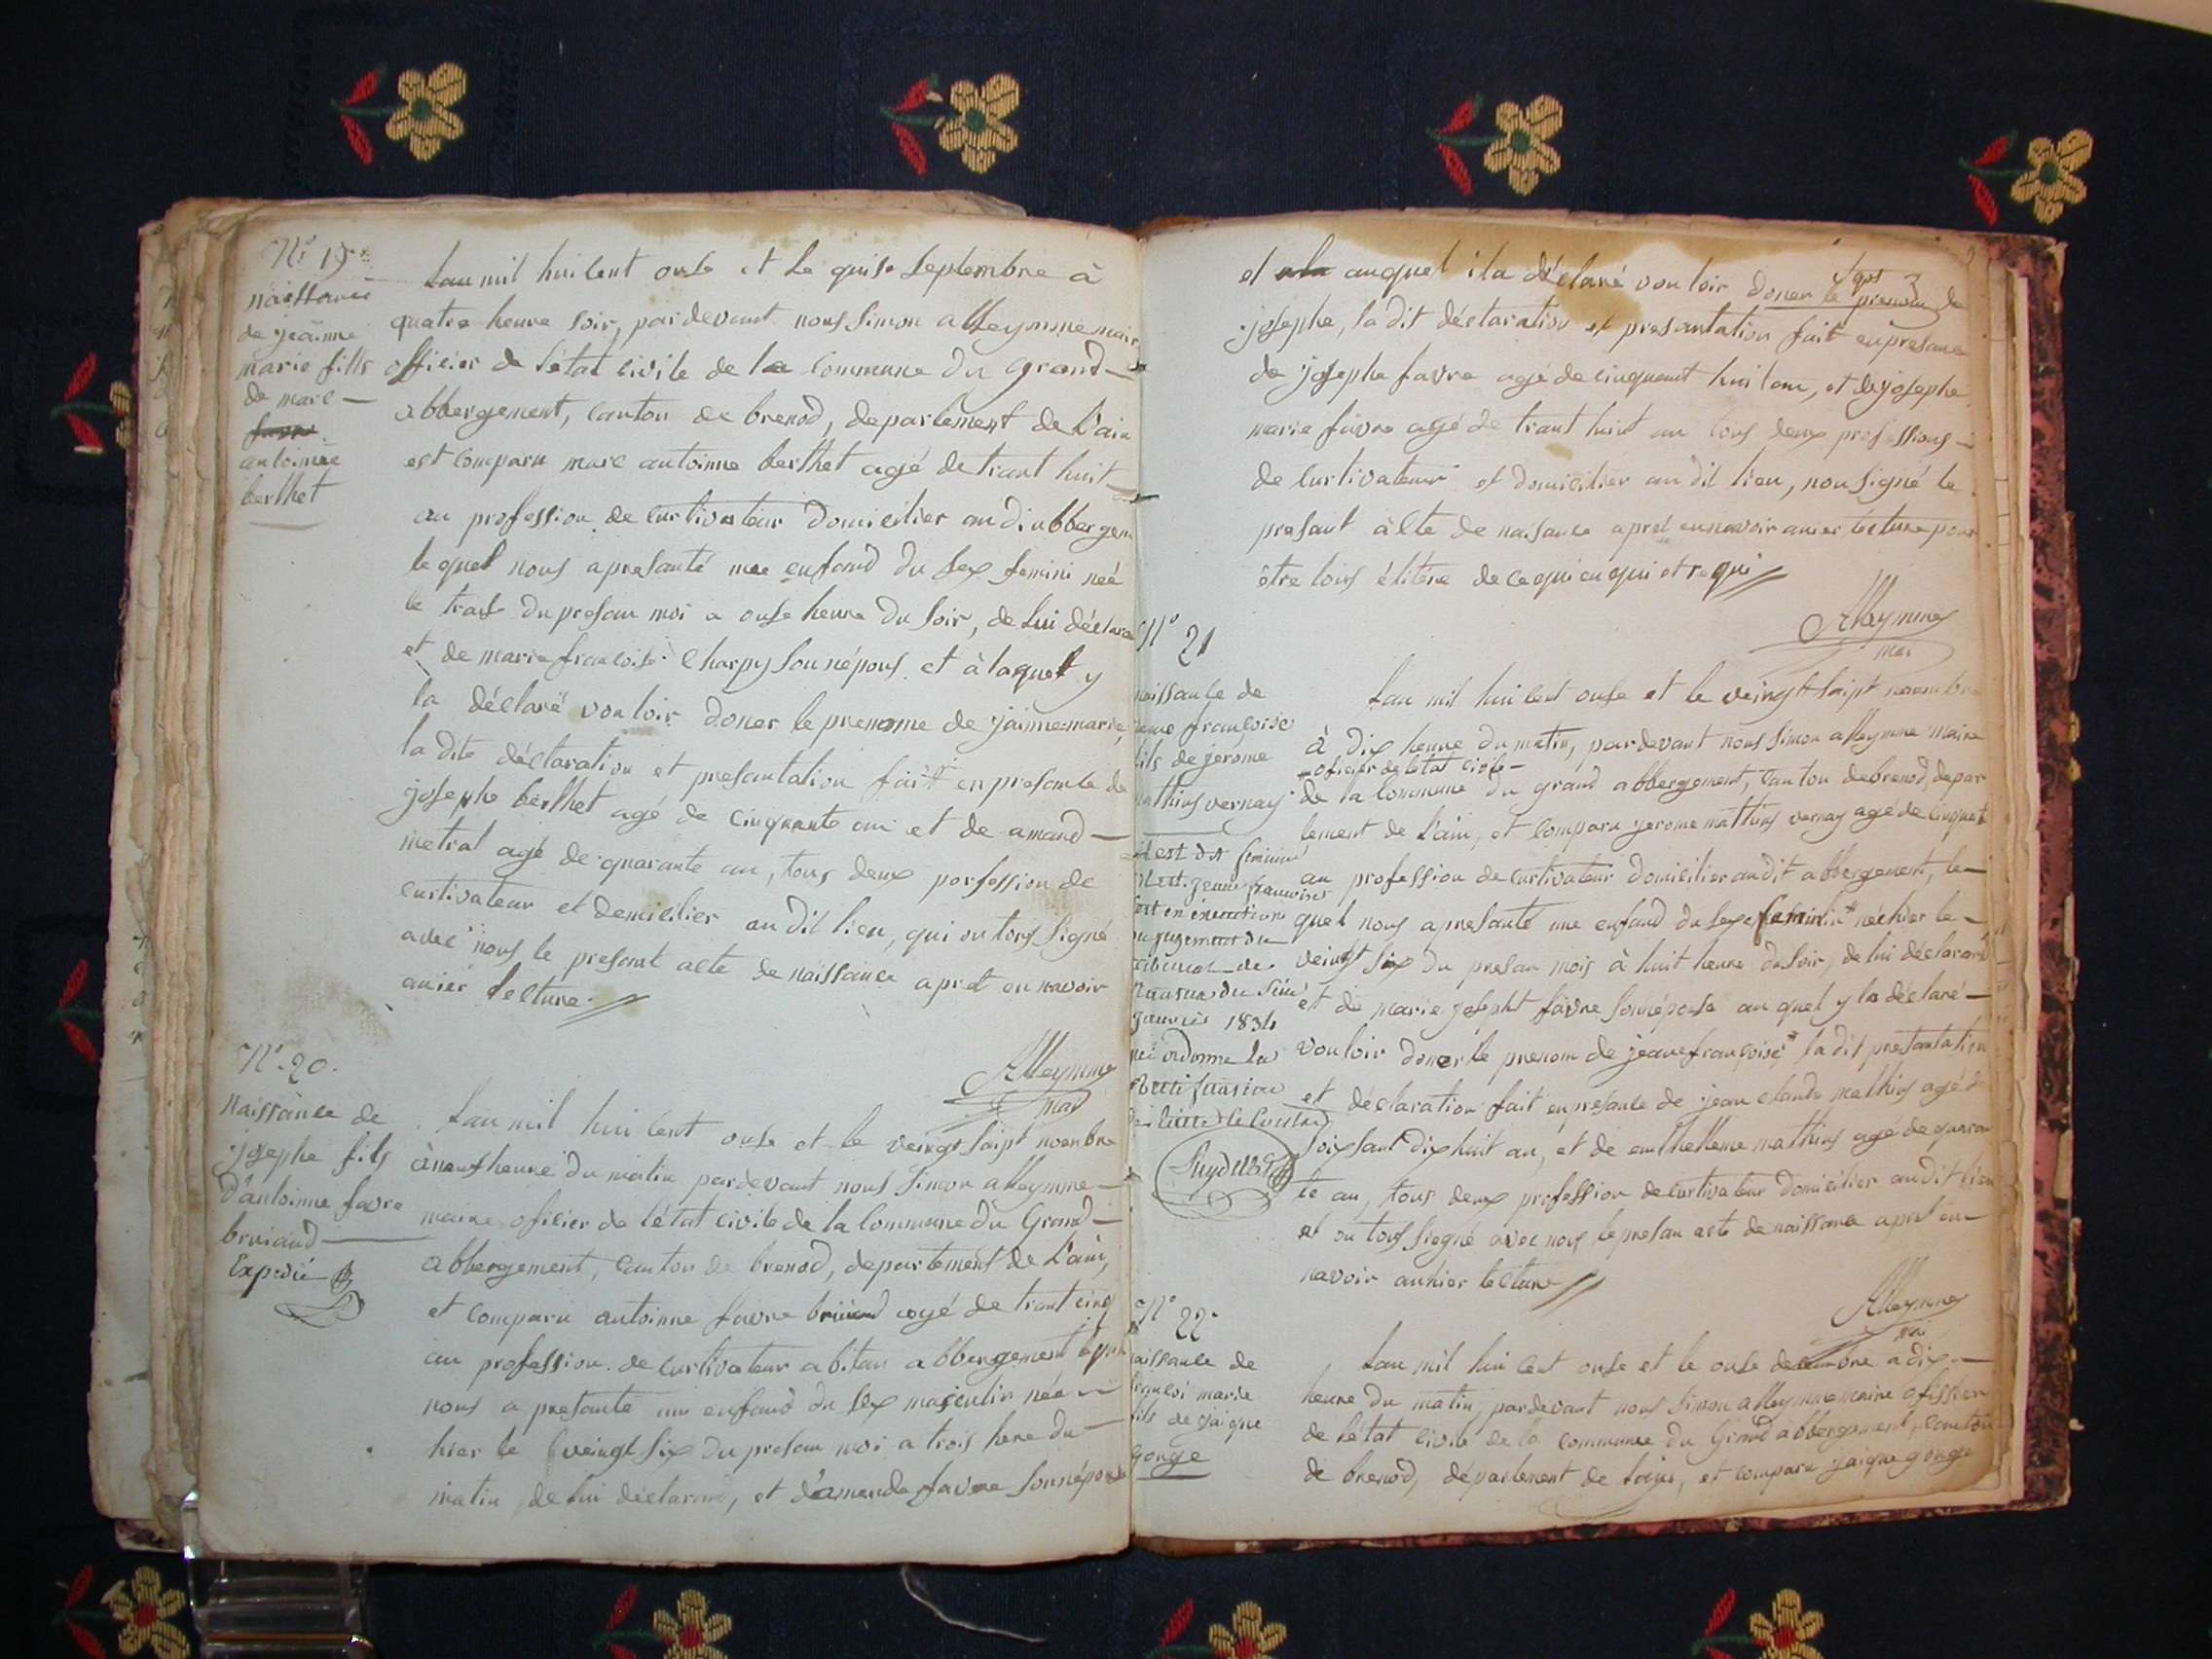 N° 19
naissance
de jeanne
marie fille
de marc
antoinne
berthet
Lan mil huit cent onse et le quise septembre à
quatre heure soir, pardevant nous Simon alleymme maire
officier de l'état civile de la Commune du grand
abbergement, canton de brenod, departement de L'ain
est comparu marc antoinne berthet agé de trant huit
an profession de curtivateur domicilier au di abbergem
le quel nous apresanté une enfand du sex femini neé
le traise du presan moi a onse heure du soir, de lui déclara
et de marie francoise Charpy son népous et à laquel y
la déclaré vouloir doner le prenome de jaine marie,
la dite déclaration et presantation fait en presance de
josephe berthet agé de cinquante an et de amand
metral agé de quarante an, tous deux porfession de
curtivateur et demicilier au dit lieu, qui on tous signé
avec nous le presant acte de naissance apret en navoir
anier lecture
Alleymme
mai
N° 20.
Naissance de
josephe fils
d'antoinne favre
bruiand
Expedié
Lan mil hui cent onse et le veingt saipt noenbre
à neuf heure du matin pardevant nous Simon alleymme
maire oficier de l'état civile de la Commune du Grand
abbergement, canton de brenod, departement de L'ain,
et comparu antoinne favre bruiand agé de trant cinq
an profession de curtivateur abitan abbergement
nous a presanté un enfand du sex masculin née
hier le veingt six du presan moi a trois here du
matin de lui déclarant, et d'amende favre son népouse
et auquel ila déclaré vouloir doner le prenom de
josephe, la dit déclaration et presantation fait en presance
de josephe favre agé de cinquant huit an, et de josephe
marie favre agé de trant huit an tous deux professions
de curtivateur et domicilier au dit lieu, non signé le
presant acte de naisance apret en navoir anier lecture pour
être lois
Alleymme
mai
N° 21
naissance de
jeane françoise
fils de jerome
mathius vernay
il est dit feminin
et jeane francoise
cest en execution
du jugement du
tribunal de
Nantua du Six
janvier 1834
qui ordonne la
rectification
Lan mil hui cent onse et le veingt saipt noenbre
à dix heure du matin, pardevant nous Simon alleymme maire
oficier de l'état civile
de la Commune du grand abbergement, Canton de brenod, depar
tement de L'ain, et comparu jerome mathius vernay agé de cinquant
an profession de curtivateur domicilier au dit abbergement, le
quel nous apresanté une enfand du sex feminin née hier le
veingt six du presan mois à huit heure du soir, de lui déclarant
et de marie josepht favre son népouse au quel y la déclaré
vouloir doner le prenom de jeane françoise la dit presantation
et déclaration fait en presance de jean claude mathius agé de
soixsant dix huit an, et de anthelleme mathius agé de quaran
te an, tous deux profession de curtivateur domicilier au dit lieu
et on tous siegné avec nous le presan acte de naissance apret en
navoir anhier lecture
Alleymme
mai
N° 22
naissance de
marie
fils de jaique
gonge
Lan mil hui cent onse et le onse decembre a dix
heure du matin, pardevant nous Simon alleymme maire ofissier
de l'état civile de la commune du Grand abbergement, canton
de brenod, département de loin, et comparu jaique gonge